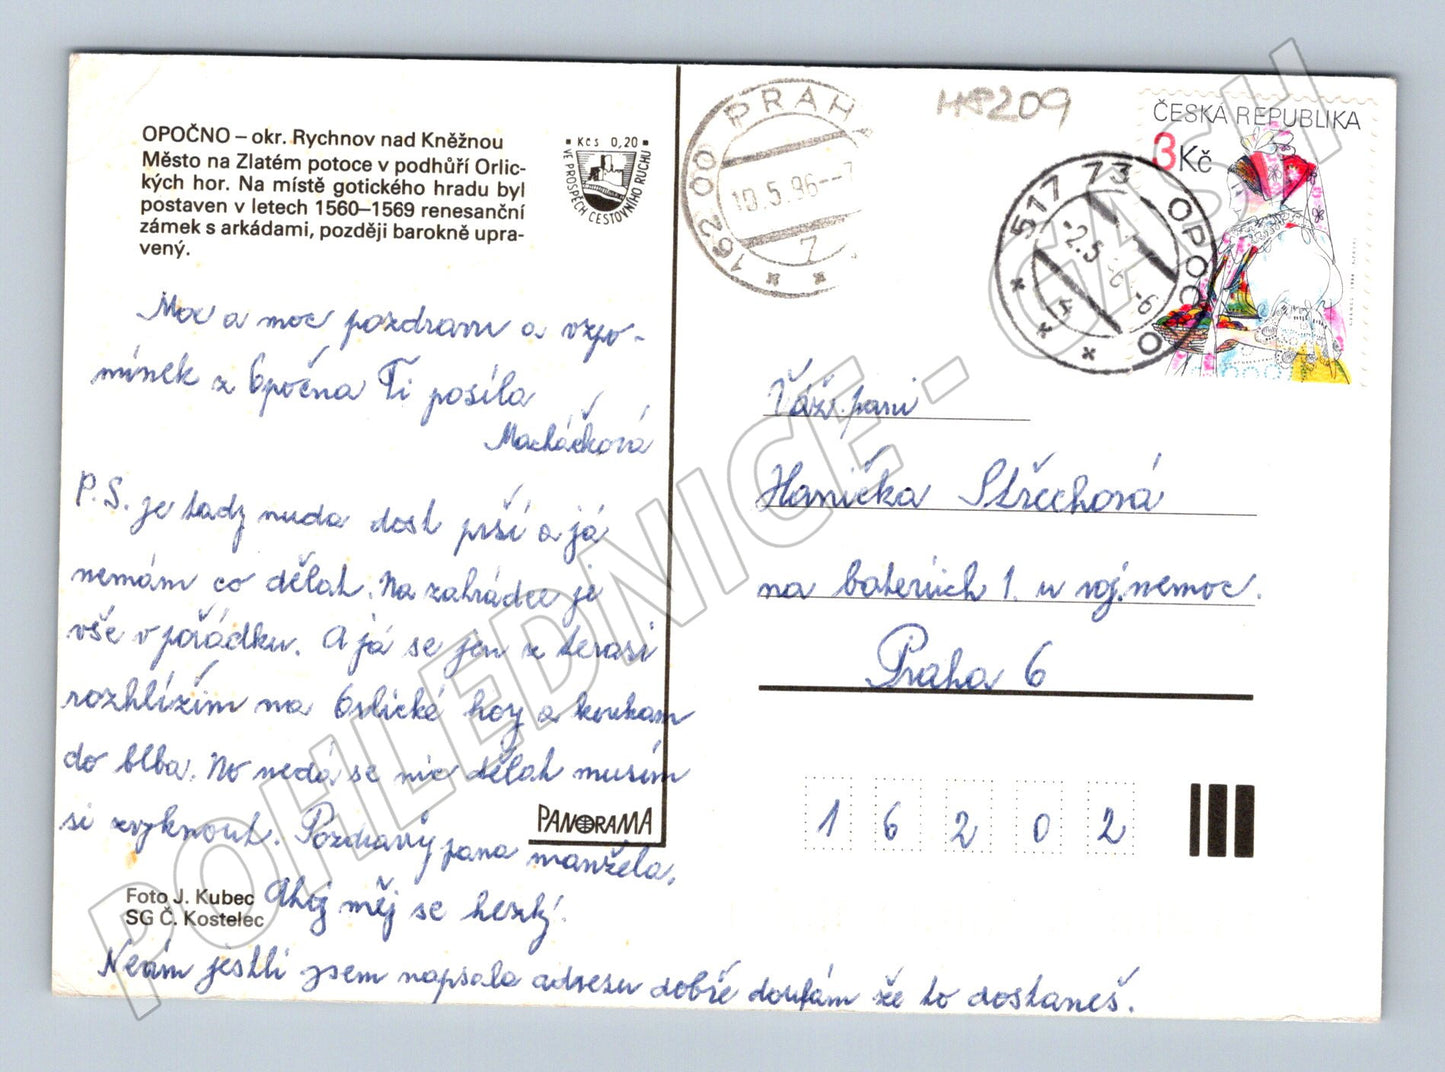 OPOČNO – okr. Rychnov nad Kněžnou
Město na Zlatém potoce v podhůří Orlic-
kých hor. Na místě gotického hradu byl
postaven v letech 1560–1569 renesanční
zámek s arkádami, později barokně upra-
vený.
Kčs 0,20
VE PROSPĚCH CESTOVNÍHO RUCHU
162 00 PRAH
10.5.96--7
7
HP209
517 73 OPOČNO
-2.5
ČESKÁ REPUBLIKA
3Kč
Moc a moc pozdravu a vzpo-
mínek z Opočna Ti posíla
Macháčková
P.S. je tady nuda dost prší a já
nemám co dělat. Na zahrádce je
vše v pořádku. A já se jen z terasi
rozhlížím na Orlické hory a koukam
do blba. No nedá se nic dělat musím
si zvyknout. Pozdravuj pana manžela.
Ahoj měj se hezky.
Neám jestli jsem napsala adresu dobře doufám že to dostaneš.
PANORAMA
Foto J. Kubec
SG Č. Kostelec
Váž. pani
Hanička Střechová
na bateriích 1. u voj. nemoc.
Praha 6
16202
POHLEDNICE - CASH